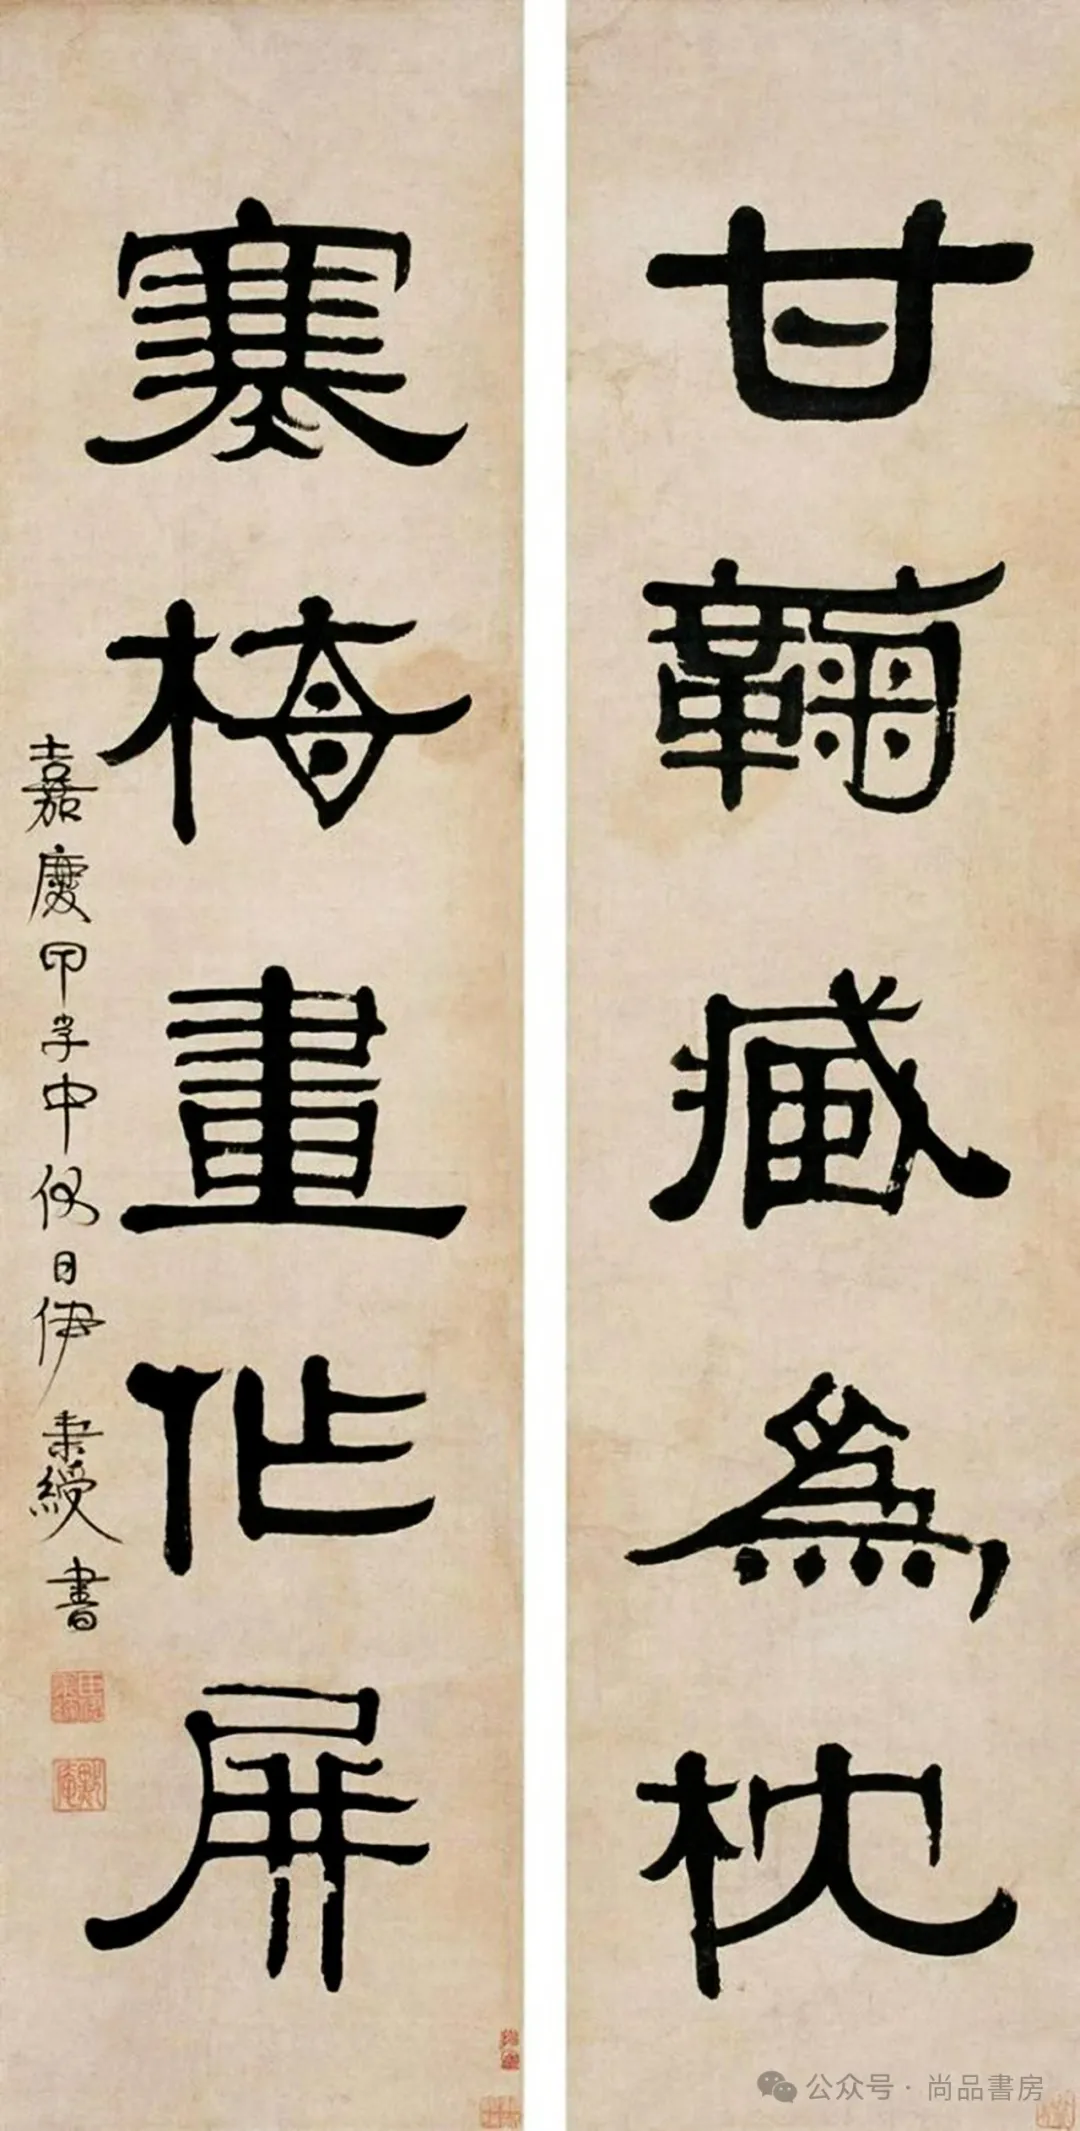 甘鞠臧為枕
寒梅畫作屏
嘉慶甲子中伏日伊秉綬書
公众号·尚品書房